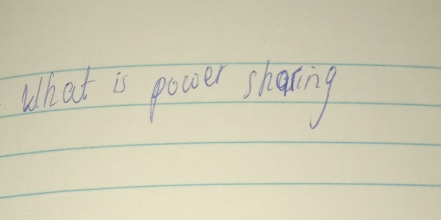 What is power sharing